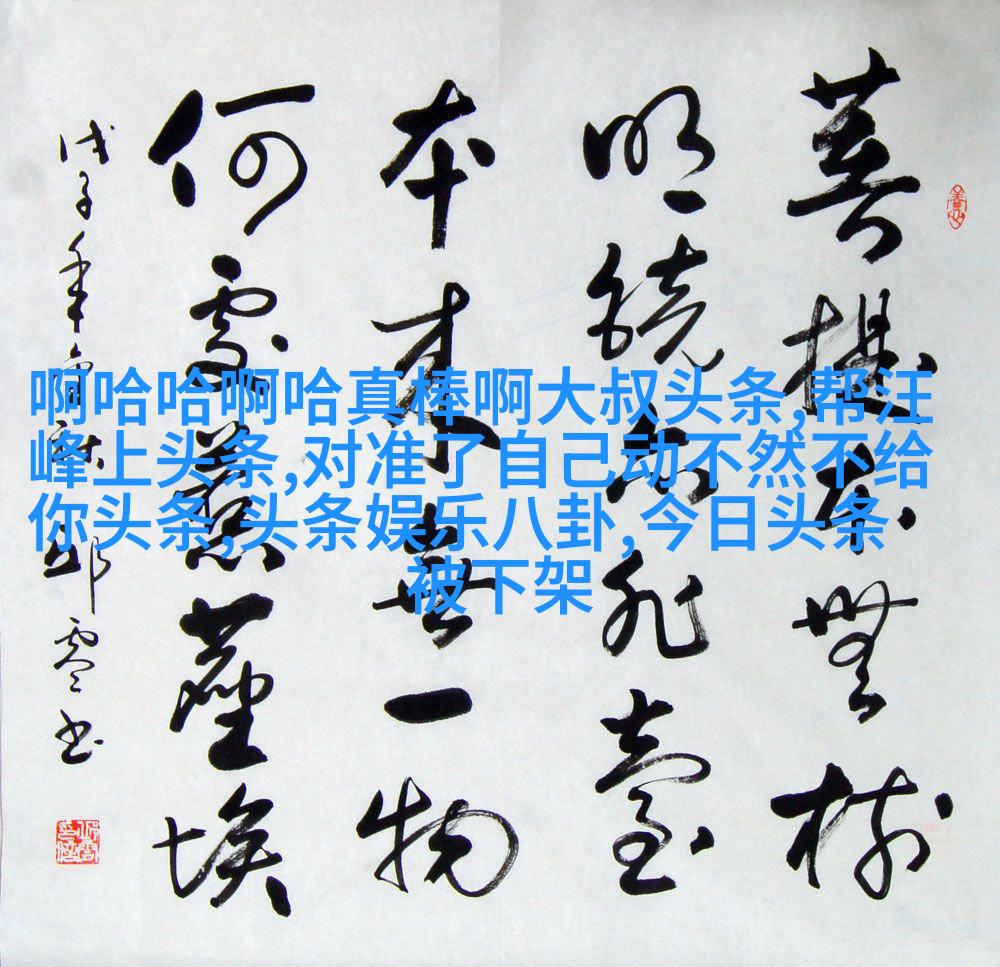 菩提本無樹
明鏡亦非臺
本來無一物
何處惹塵埃
戊子年
邱零书
啊哈哈啊哈真棒啊大叔头条,帮汪
峰上头条,对准了自己动不然不给
你头条,头条娱乐八卦,今日头条
被下架